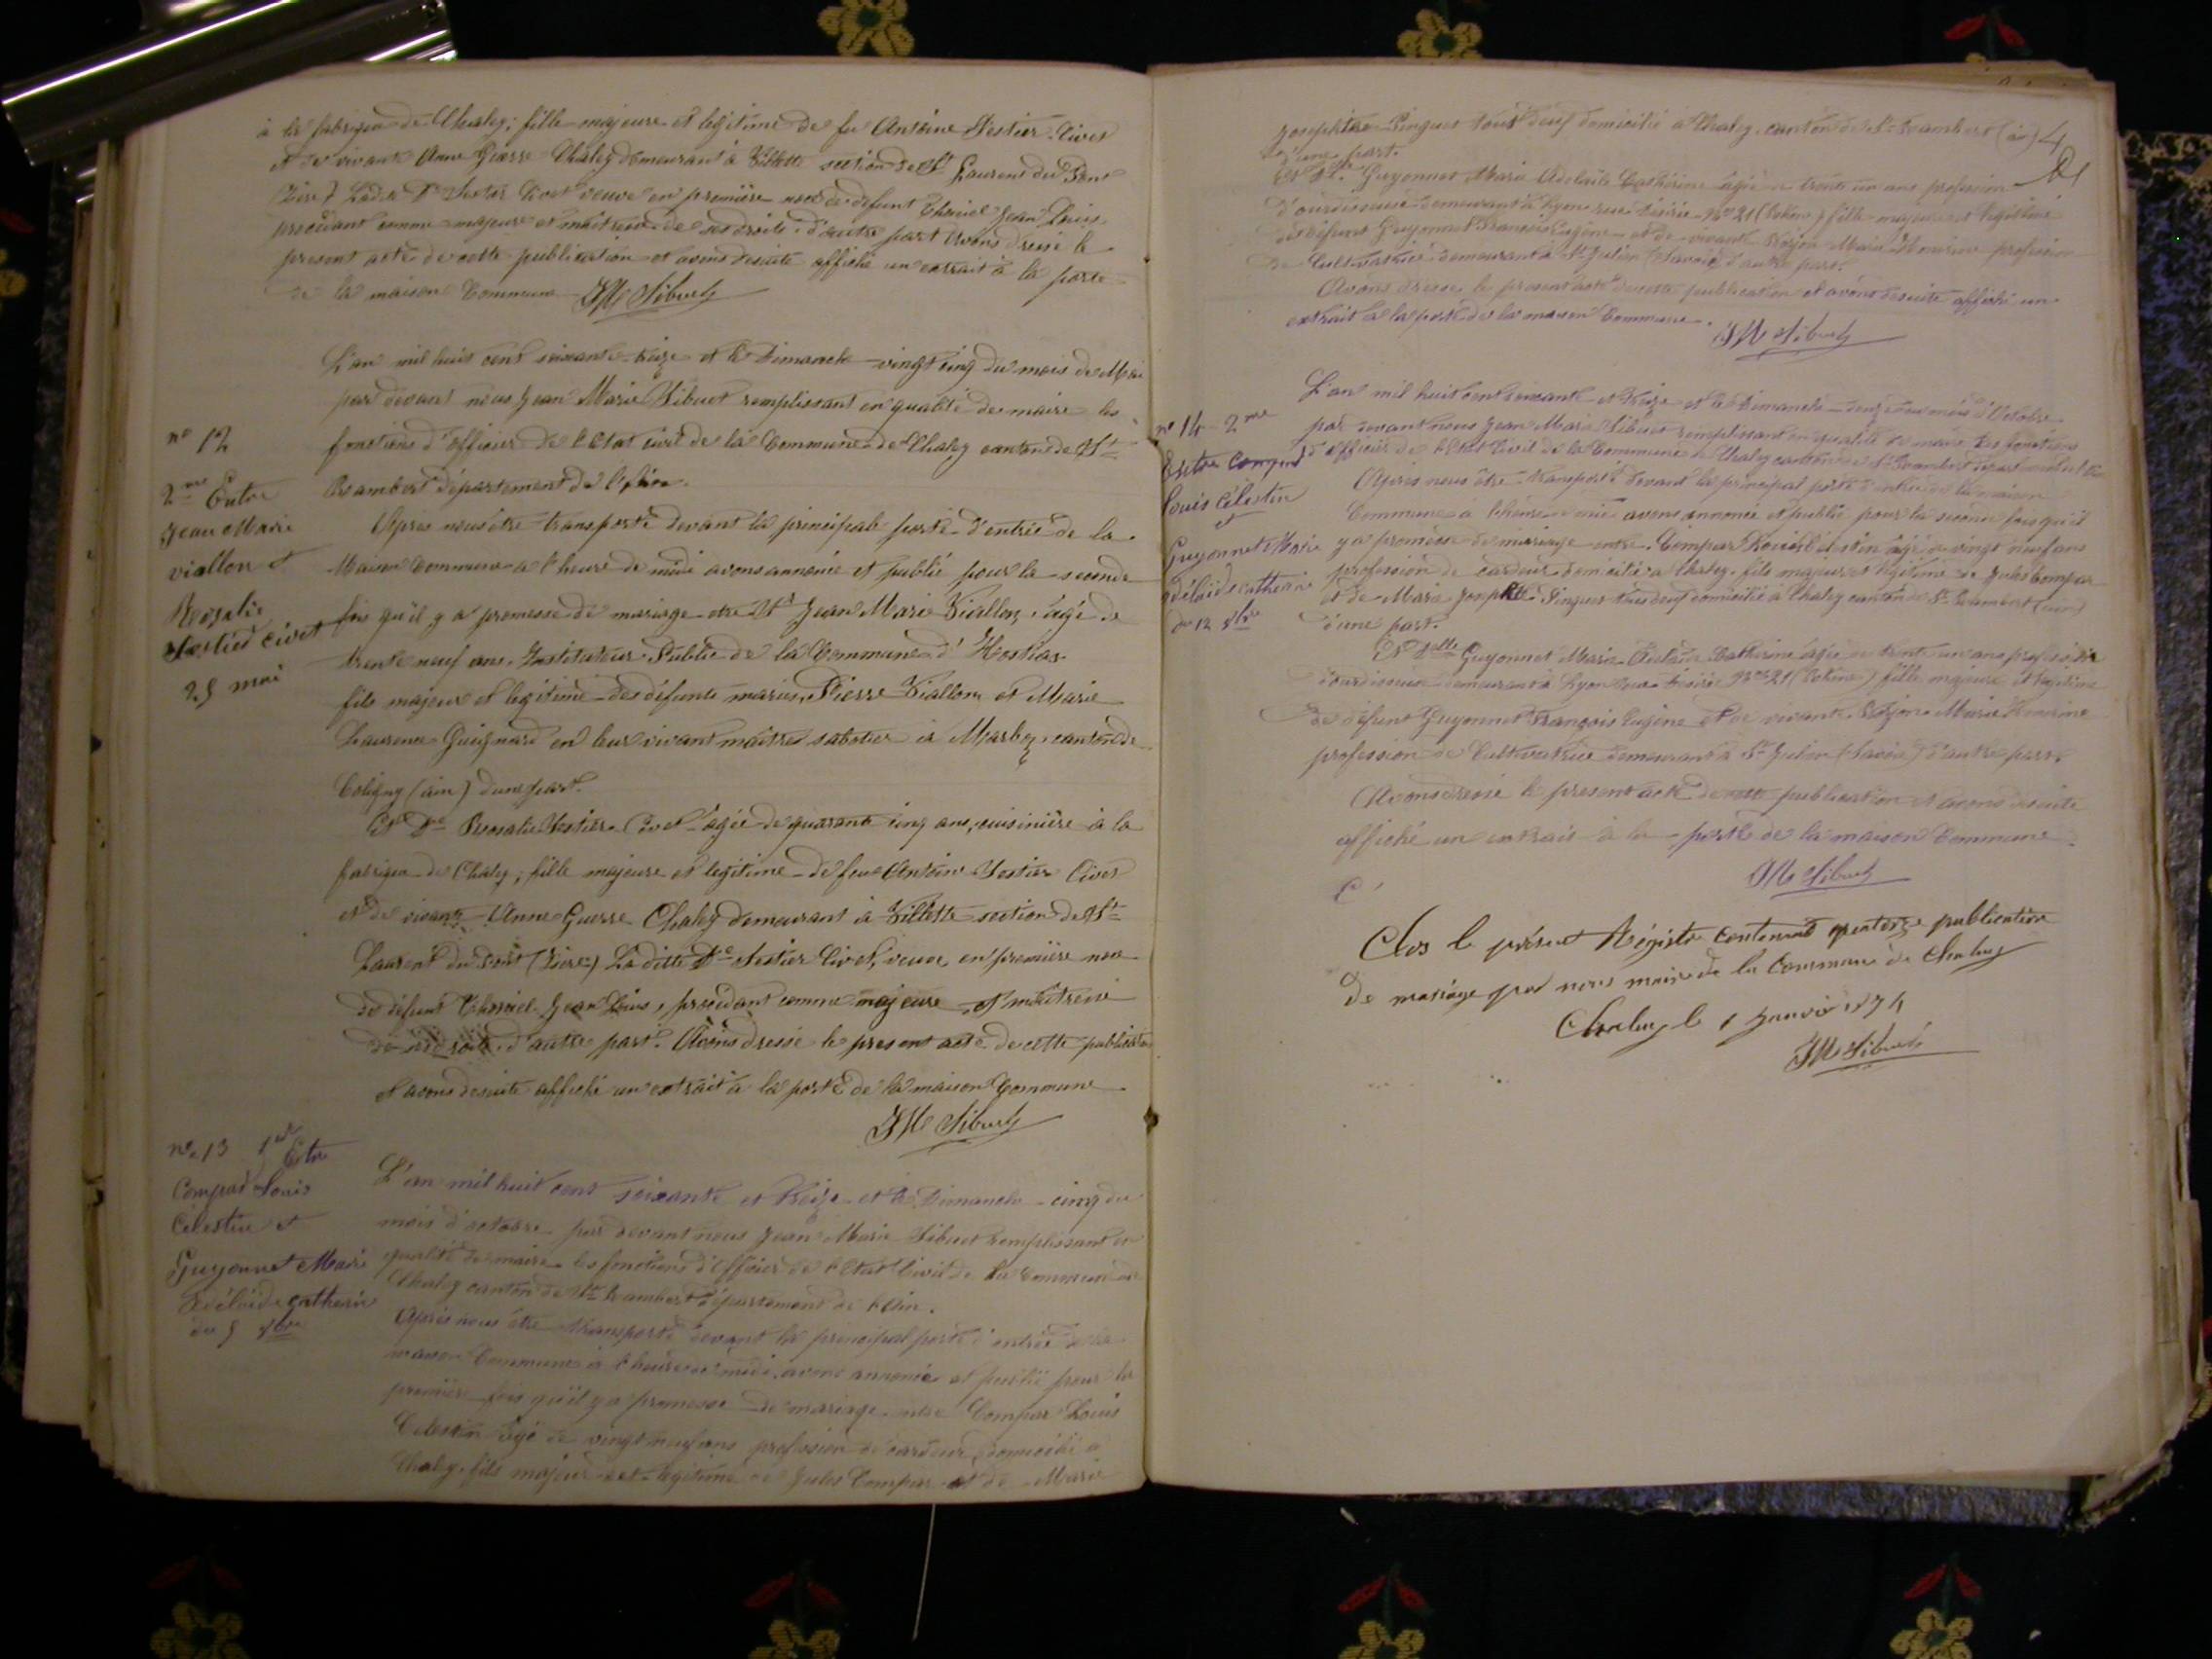 à la fabrique de Chaley; fille majeure et legitime de feu Antoine Sestier Civet
et de vivante Anne Guerre Chaley demeurant à Villette section de St Laurent du Pont
(Isère) Ladite De Sestier Civet veuve en première noce de defunt Jean Louis
procédant comme majeure et maîtresse de ses droits d'autre part Avons dressé le
present acte de cette publication et avons desuite affiché un extrait à la porte
de la maison Commune JM Sibuet
L'an mil huit cent soixante-treize et le Dimanche vingt cinq du mois de Mai
par devant nous Jean Marie Sibuet remplissant en qualité de maire les
fonctions d'officier de l'Etat civil de la Commune de Chaley canton de St
Rambert département de l'Ain.
nº 12
2me Entre
Jean Marie
viallon et
Rosalie
Sestier civet
25 mai
Après nous être transporté devant la principale porte d'entrée de la
Maison Commune à l'heure de midi avons annoncé et publié pour la seconde
fois qu'il y a promesse de mariage etre Jean Marie Viallon, âgé de
trente neuf ans, Instituteur Public de la Commune d'Hostias
fils majeur et legitime des défunts mariés, Pierre Viallon et Marie
Laurence Guignard en leur vivant maître sabotier à canton de
Coligny (ain) d'une part.
Et De Rosalie Sestier Civet âgée de quarante cinq ans, cuisinière à la
fabrique de Chaley; fille majeure et legitime de feu Antoine Sestier Civet
et de vivante Anne Guerre Chaley demeurant à Villette section de St
Laurent du Pont (Isère) La ditte De Sestier Civet, veuve en première noce
de défunt Jean Louis, procédant comme majeure et maîtresse
de ses droits d'autre part. Avons dressé le present acte de cette publication
et avons desuite affiché un extrait à la porte de la maison Commune
JM Sibuet
nº 13 1er Etre
Compar Louis
Célestin et
Guyonnet Marie
adélaïde catherine
du 5 8bre
L'an mil huit cent soixante et treize et le Dimanche cinq du
mois d'octobre par devant nous Jean Marie Sibuet remplissant en
qualité de maire les fonctions d'officier de l'Etat Civil de la Commune de
Chaley canton de St Rambert département de l'Ain.
Après nous être transporté devant la principal porte d'entrée de la
maison Commune à l'heure de midi, avons annoncé et publié pour la
première fois qu'il y a promesse de mariage entre Compar Louis
Celestin âgé de vingt neuf ans profession de cardeur domicilié à
Chaley fils majeur et legitime de Jules Compar et de Marie
Pingues tous deux domicilié à Chaley canton de St Rambert (ain) 4
d'une part.
Et Dlle Guyonnet Marie Adelaïde Catherine âgée de trente un ans profession
d'ourdisseuse demeurant à Lyon rue Désirée Nº 21 (Rhône) fille majeure et legitime
de défunt Guyonnet François Eugène et de vivante Marie profession
de Cultivatrice demeurant à St Julien (Savoie) d'autre part.
Avons dressé le present acte de cette publication et avons desuite affiché un
extrait à la porte de la maison Commune.
JM Sibuet
nº 14 2me
Entre Compar
Louis célestin
et
Guyonnet Marie
adélaïde catherine
du 12 8bre
L'an mil huit cent soixante et treize et le Dimanche douze du mois d'Octobre
par devant nous Jean Marie Sibuet remplissant en qualité de maire les fonctions
d'officier de l'Etat Civil de la Commune de Chaley canton de St Rambert département de l'Ain
Après nous être transporté devant la principal porte d'entrée de la maison
Commune à l'heure de midi avons annoncé et publié pour la seconde fois qu'il
y a promesse de mariage entre Compar Louis Célestin âgé de vingt neuf ans
profession de cardeur domicilié à Chaley fils majeur et legitime de Jules Compar
et de Marie Pingues tous deux domicilié à Chaley canton de St Rambert (ain)
d'une part.
Et Dlle Guyonnet Marie Adelaïde Catherine âgée de trente un ans profession
d'ourdisseuse demeurant à Lyon rue Désirée Nº 21 (Rhône) fille majeure et legitime
de défunt Guyonnet François Eugène et de vivante Marie
profession de Cultivatrice demeurant à St Julien (Savoie) d'autre part.
Avons dressé le present acte de cette publication et avons desuite
affiché un extrait à la porte de la maison Commune.
JM Sibuet
Clos le présent Régistre contenant quatorze publication
de mariage par nous maire de la Commune de Chaley
Chaley le 1 Janvier 1874
JM Sibuet